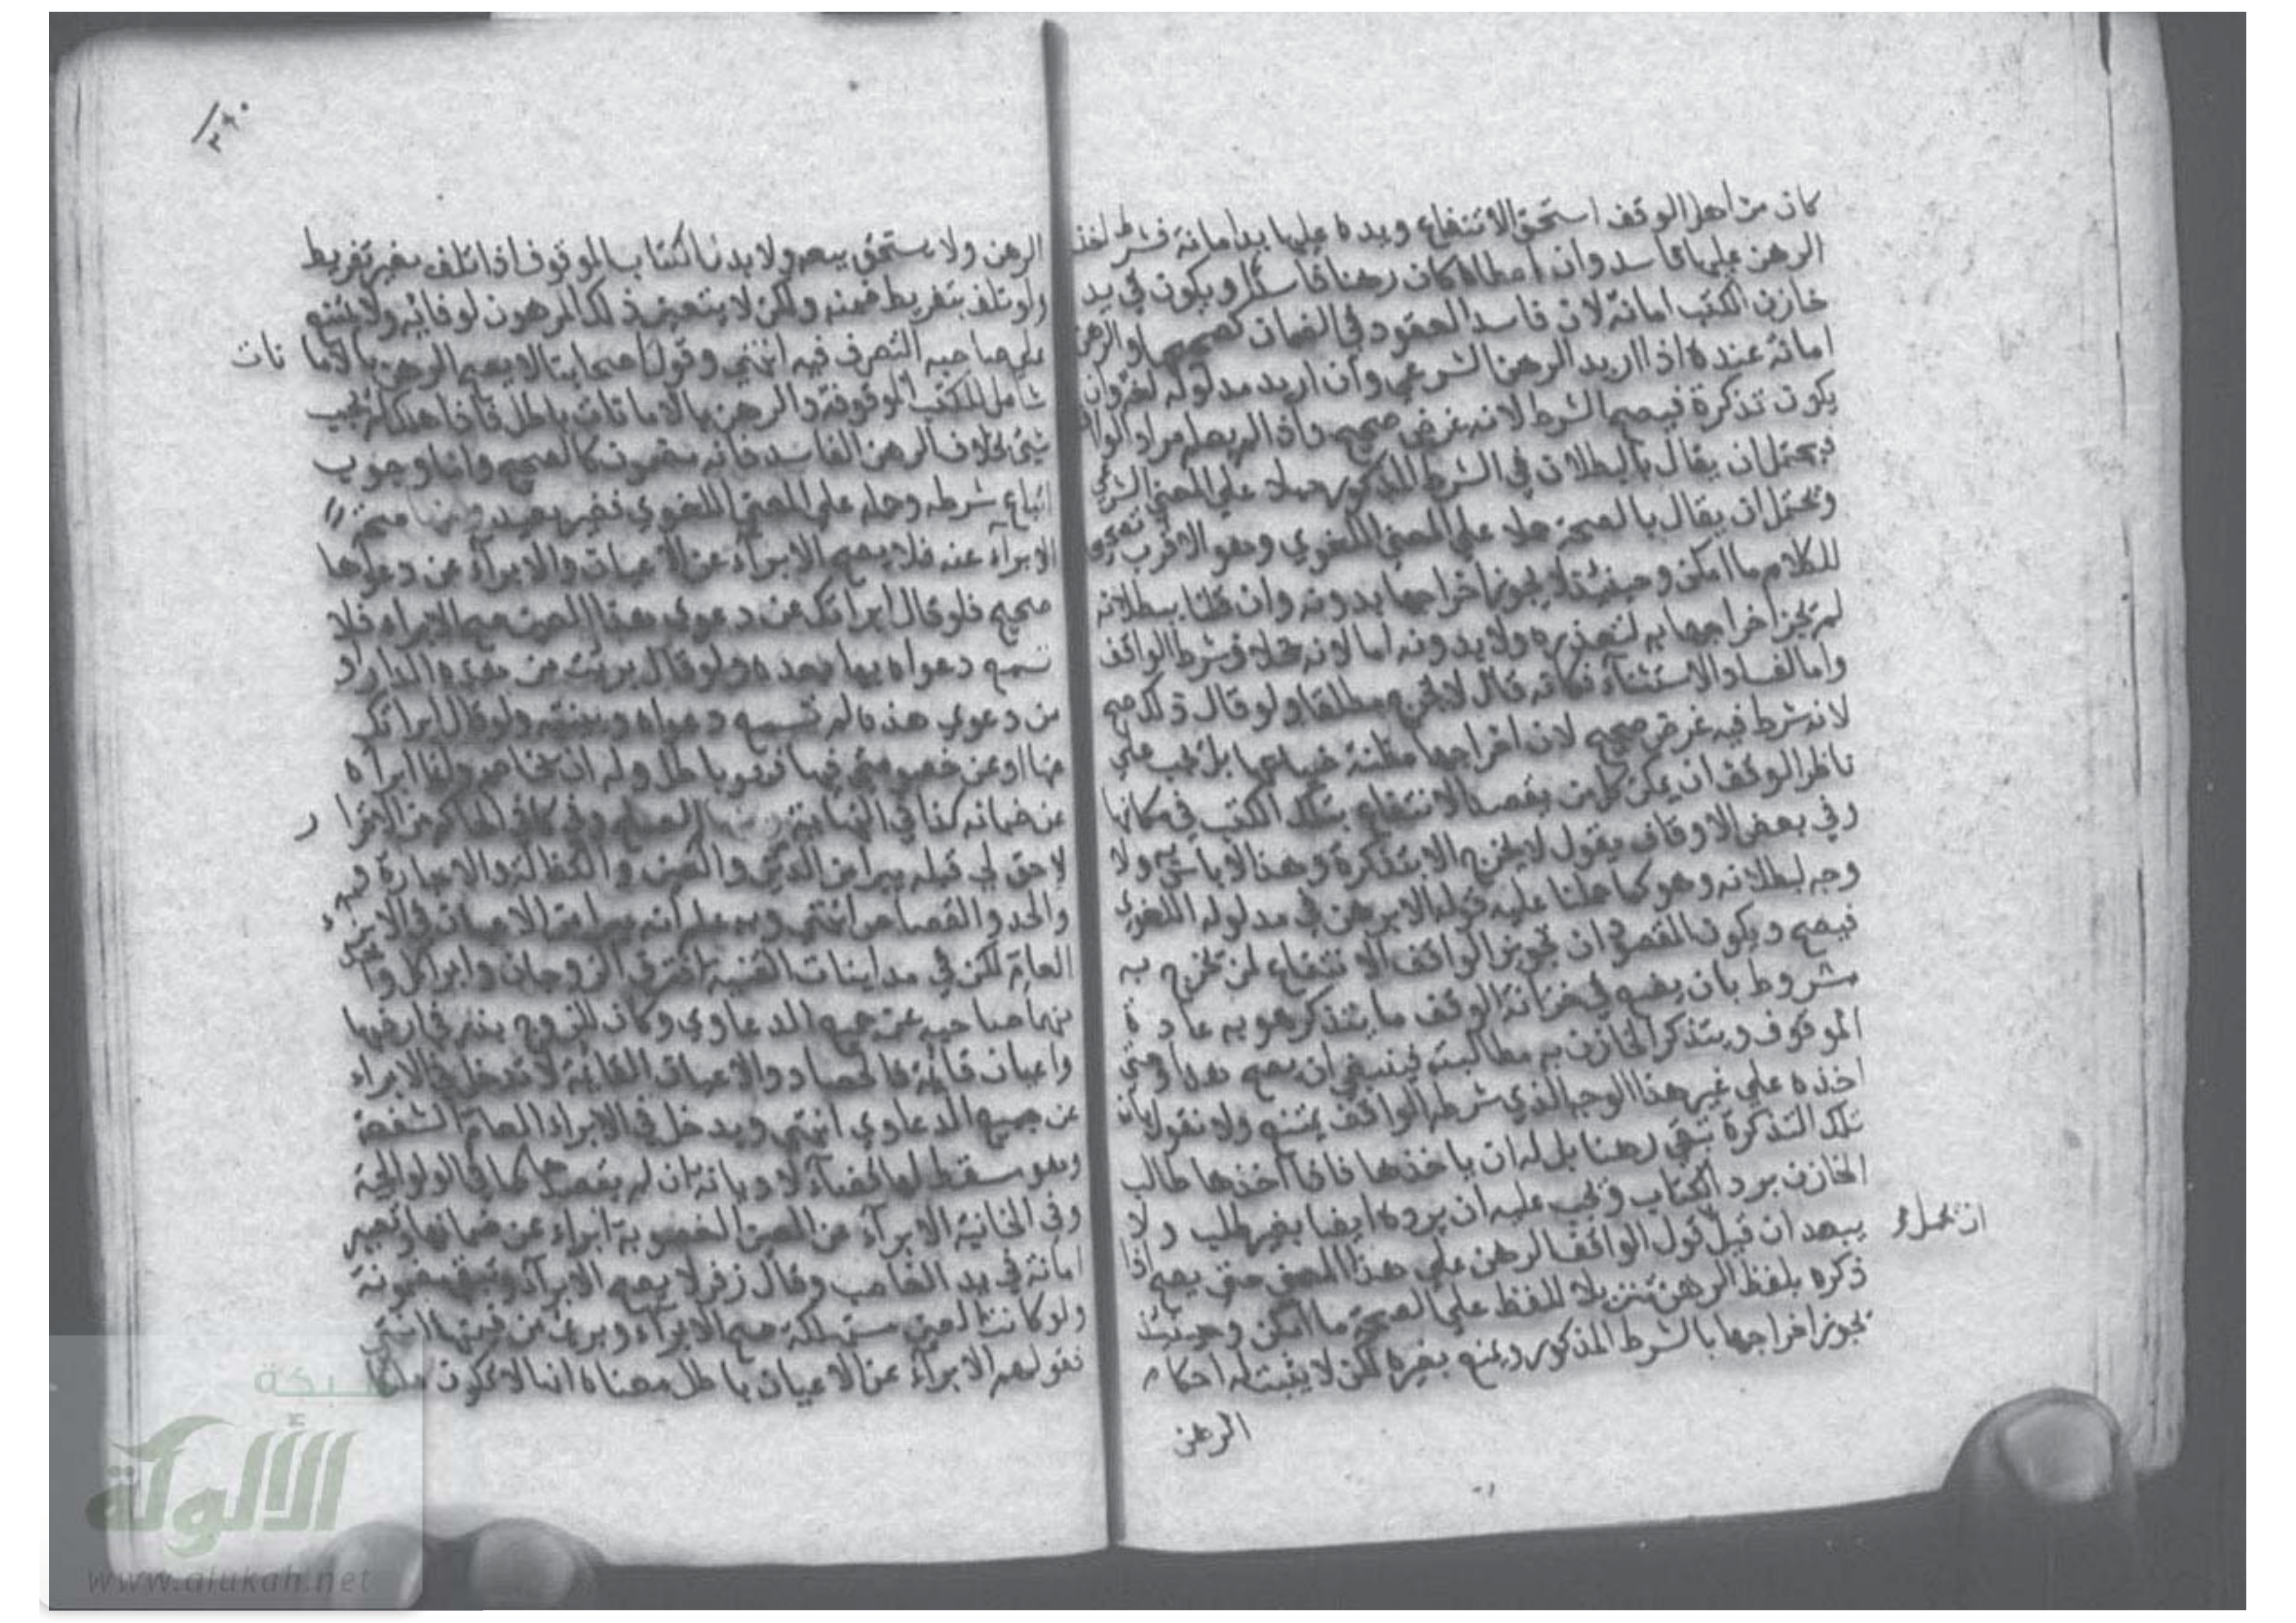 كان من أهل الوقف استحق الانتفاع ويده عليها يد أمانة فشرط اخذ
الرهن عليها فاسد وان اعطاه كان رهنا فاسدا ويكون في يد
خازن الكتب امانة لان فاسد العقود في الضمان كصحيحها والرهن
امانة عنده اذا اريد الرهن الشرعي وان اريد مدلوله لغة وان
يكون تذكرة فيصح الشرط لانه غرض صحيح واذا لم يعلم مراد الواقف
فيحتمل ان يقال بالبطلان في الشرط المذكور حملا علي المعني الشرعي
ويحتمل ان يقال بالصحة حملا علي المعني اللغوي وهو الاقرب تصحيحا
للكلام ما امكن وحينئذ لا يجوز اخراجها بدونه وان قلنا ببطلانه
لم يجز اخراجها به لتعذره ولا بدونه اما لانه خلاف شرط الواقف
واما لفساد الاستثناء فكانه قال لا يخرج مطلقا ولو قال ذلك صح
لانه شرط فيه غرض صحيح لان اخراجها مظنة ضياعها بل يجب علي
ناظر الوقف ان يمكن كل من يقصد الانتفاع بتلك الكتب في مكانها
وفي بعض الاوقاف يقول لا يخرج الا بتذكرة وهذا لا باس به ولا
وجه لبطلانه وهو كما حملنا عليه قوله الا برهن في مدلوله اللغوي
فيصح ويكون المقصود ان تجويز الواقف الانتفاع لمن يخرج به
مشروط بان يضع في خزانة الوقف ما يتذكر هو به عادة
الموقوف ويتذكر الخازن به مطالبته فينبغي ان يصح هذا ومتي
اخذه علي غير هذا الوجه الذي شرطه الواقف يمتنع ولا نقول بان
تلك التذكرة تبقي رهنا بل له ان ياخذها فاذا اخذها طالب
الخازن برد الكتاب ويجب عليه ان يرده ايضا بغير طلب ولا
يبعد ان قيل قول الواقف الرهن علي هذا المعني حتي يصح اذا
ان يحمل
ذكره بلفظ الرهن تنزيلا للفظ علي الصحة ما امكن وحينئذ
يجوز اخراجها بالشرط المذكور ويمنع بغيره لكن لا يثبت له احكام
الرهن
٢٩٠
الرهن ولا يستحق بيعه ولا بدنا الكتاب الموقوف اذا تلف بغير تفريط
ولو تلف بتفريط ضمنه ولكن لا يتعين ذلك المرهون لوفائه ولا يمتنع
علي صاحبه التصرف فيه انتهي وقول اصحابنا لا يصح الرهن بالاما نات
شامل للكتب الموقوفة والرهن بالامانات باطل فاذا هلك لم يجب
شيء بخلاف الرهن الفاسد فانه مضمون كالصحيح واما وجوب
اتباع شرطه وحمله علي المعني اللغوي فغير بعيد
الابراء عنه فلا يصح الابراء عن الاعيان والابراء عن دعواها
صحيح فلو قال ابراتك عن دعوي هذا العين صح الابراء فلا
تسمع دعواه بها بعده ولو قال برئت من هذه الدار او
من دعوي هذه لم تسمع دعواه وبينته ولو قال ابراتك
عنها او عن خصومتي فيها فهو باطل وله ان يخاصم وانما ابراه
عن ضمانه كذا في النهاية من الصلح وفي كافي الحاكم من الاقرار
لا حق لي قبله يبرا من الدين والعين والكفالة والاجارة
والحد والقصاص انتهي وبه علم انه يبرا من الاعيان في الابراء
العام لكن في مداينات القنية افترق الزوجان وابرا كل واحد
منهما صاحبه عن جميع الدعاوي وكان للزوج بذر في ارضها
واعيان قائمة فالحصاد والاعيان القائمة لا تدخل في الابراء
عن جميع الدعاوي انتهي ويدخل في الابراء العام الشفعة
وهو مسقط لها قضاء لا ديانة ان لم يقصدها كما في الولوالجية
وفي الخانية الابراء عن العين المغصوبة ابراء عن ضمانها وتصير
امانة في يد الغاصب وقال زفر لا يصح الابراء وتبقي مضمونة
ولو كانت العين مستهلكة صح الابراء وبرئ من قيمتها انتهي
فقولهم الابراء عن الاعيان باطل معناه انها لا تكون ملكا
شبكة
الألوكة
www.alukah.net